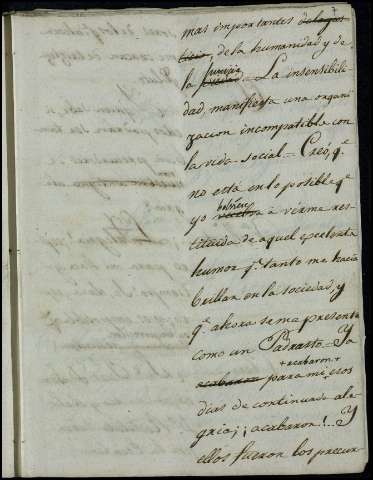 mas importantes de la jus-
ticia, de la humanidad y de
la justicia
piedad. La insensibili-
dad, manifiesta una organi-
zacion incompatible con
la vida social – Creó, q.e
no está en lo posible q.e
yo bolviese
à vérme res-
tituida de aquel exelente
humor q.e tanto me hacia
brillar en la sociedad, y
q.e ahora se me presenta
como un Padrasto – Ya
+ acabaron +
acabaron para mi, esos
dias de continuada ale-
gria; ¡acabaron!.. Y
ellos fueron los precur-